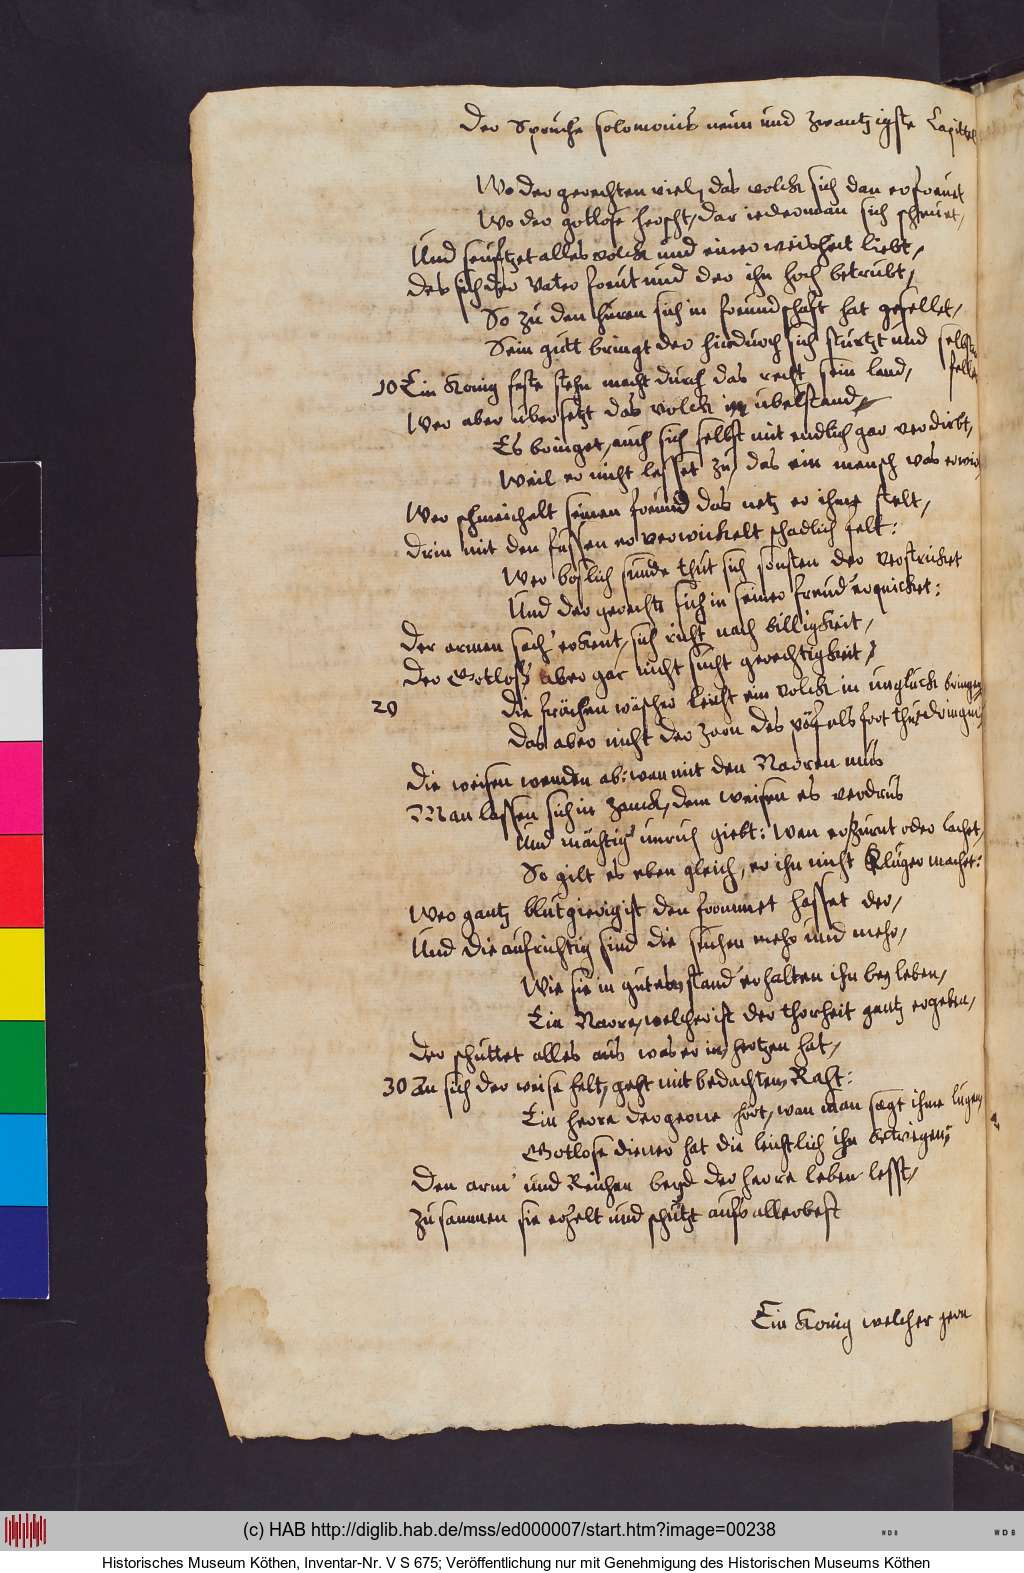 Der Spruche Solomonis neun und zwantzigste Capittel
Wo der gerechten viel, das volck sich dan erfreut
Wo der gotlose herscht, dar iederman sich scheut,
Und seuftzet alles volck und einer weisheit liebt,
des sich der Vater freut und der ihn hoch betrubt,
So zu den huren sich in freundschaft hat gesellet,
Sein gutt bringt der hindurch sich sturtzt und selbsten
fellet
10 Ein Konig feste stehn macht durch das recht sein land,
Wer aber ubersetzt das volck in ubelstand,
Es bringet, auch sich selbst mit endlich gar verdirbt,
Weil er nicht lesset zu, das ein mensch was erwir
Wer schmeichelt seinen freund das netz er ihme stelt,
drin mit den fussen er verwickelt schadlich felt:
Wer boslich sunde thut sich sonsten der verstricket
Und der gerechte sich in seiner freud erquicket:
der armen sach erkent, sich richt nach billigkeit,
der Gotlos aber gar nicht sucht gerechtigkeit,
20 die frächen wäscher leicht ein volck in ungluck bringen
das aber nicht der zorn des pöfels fort thut dringen
die weisen wenden ab: wan mit den Narren mus
Man lassen sich in zanck, dem weisen es verdrus
Und mächtig unruh giebt: wan er zurnt oder lachet,
So gilt es eben gleich, er ihn nicht Kluger machet:
Wer gantz blutgierig ist den frommen hasset der,
Und die aufrichtig sind die suchen mehr und mehr,
Wie sie in gutem stand erhalten ihn bey leben,
Ein Narre, welcher ist der thorheit gantz ergeben,
der schuttet alles aus was er im hertzen hat,
30 An sich der weise helt, geht mit bedachtem Raht:
Ein herre der gerne hört, wan man sagt ihme lugen
Gotlose diener hat die leichtlich ihn betriegen:
den arm und Reichen beyd der herre leben lesst,
zusammen sie erhelt und schützt aufs allerbest
Ein Konig welcher gern
(c) HAB http://diglib.hab.de/mss/ed000007/start.htm?image=00238
WDB
WDB
Historisches Museum Köthen, Inventar-Nr. V S 675; Veröffentlichung nur mit Genehmigung des Historischen Museums Köthen